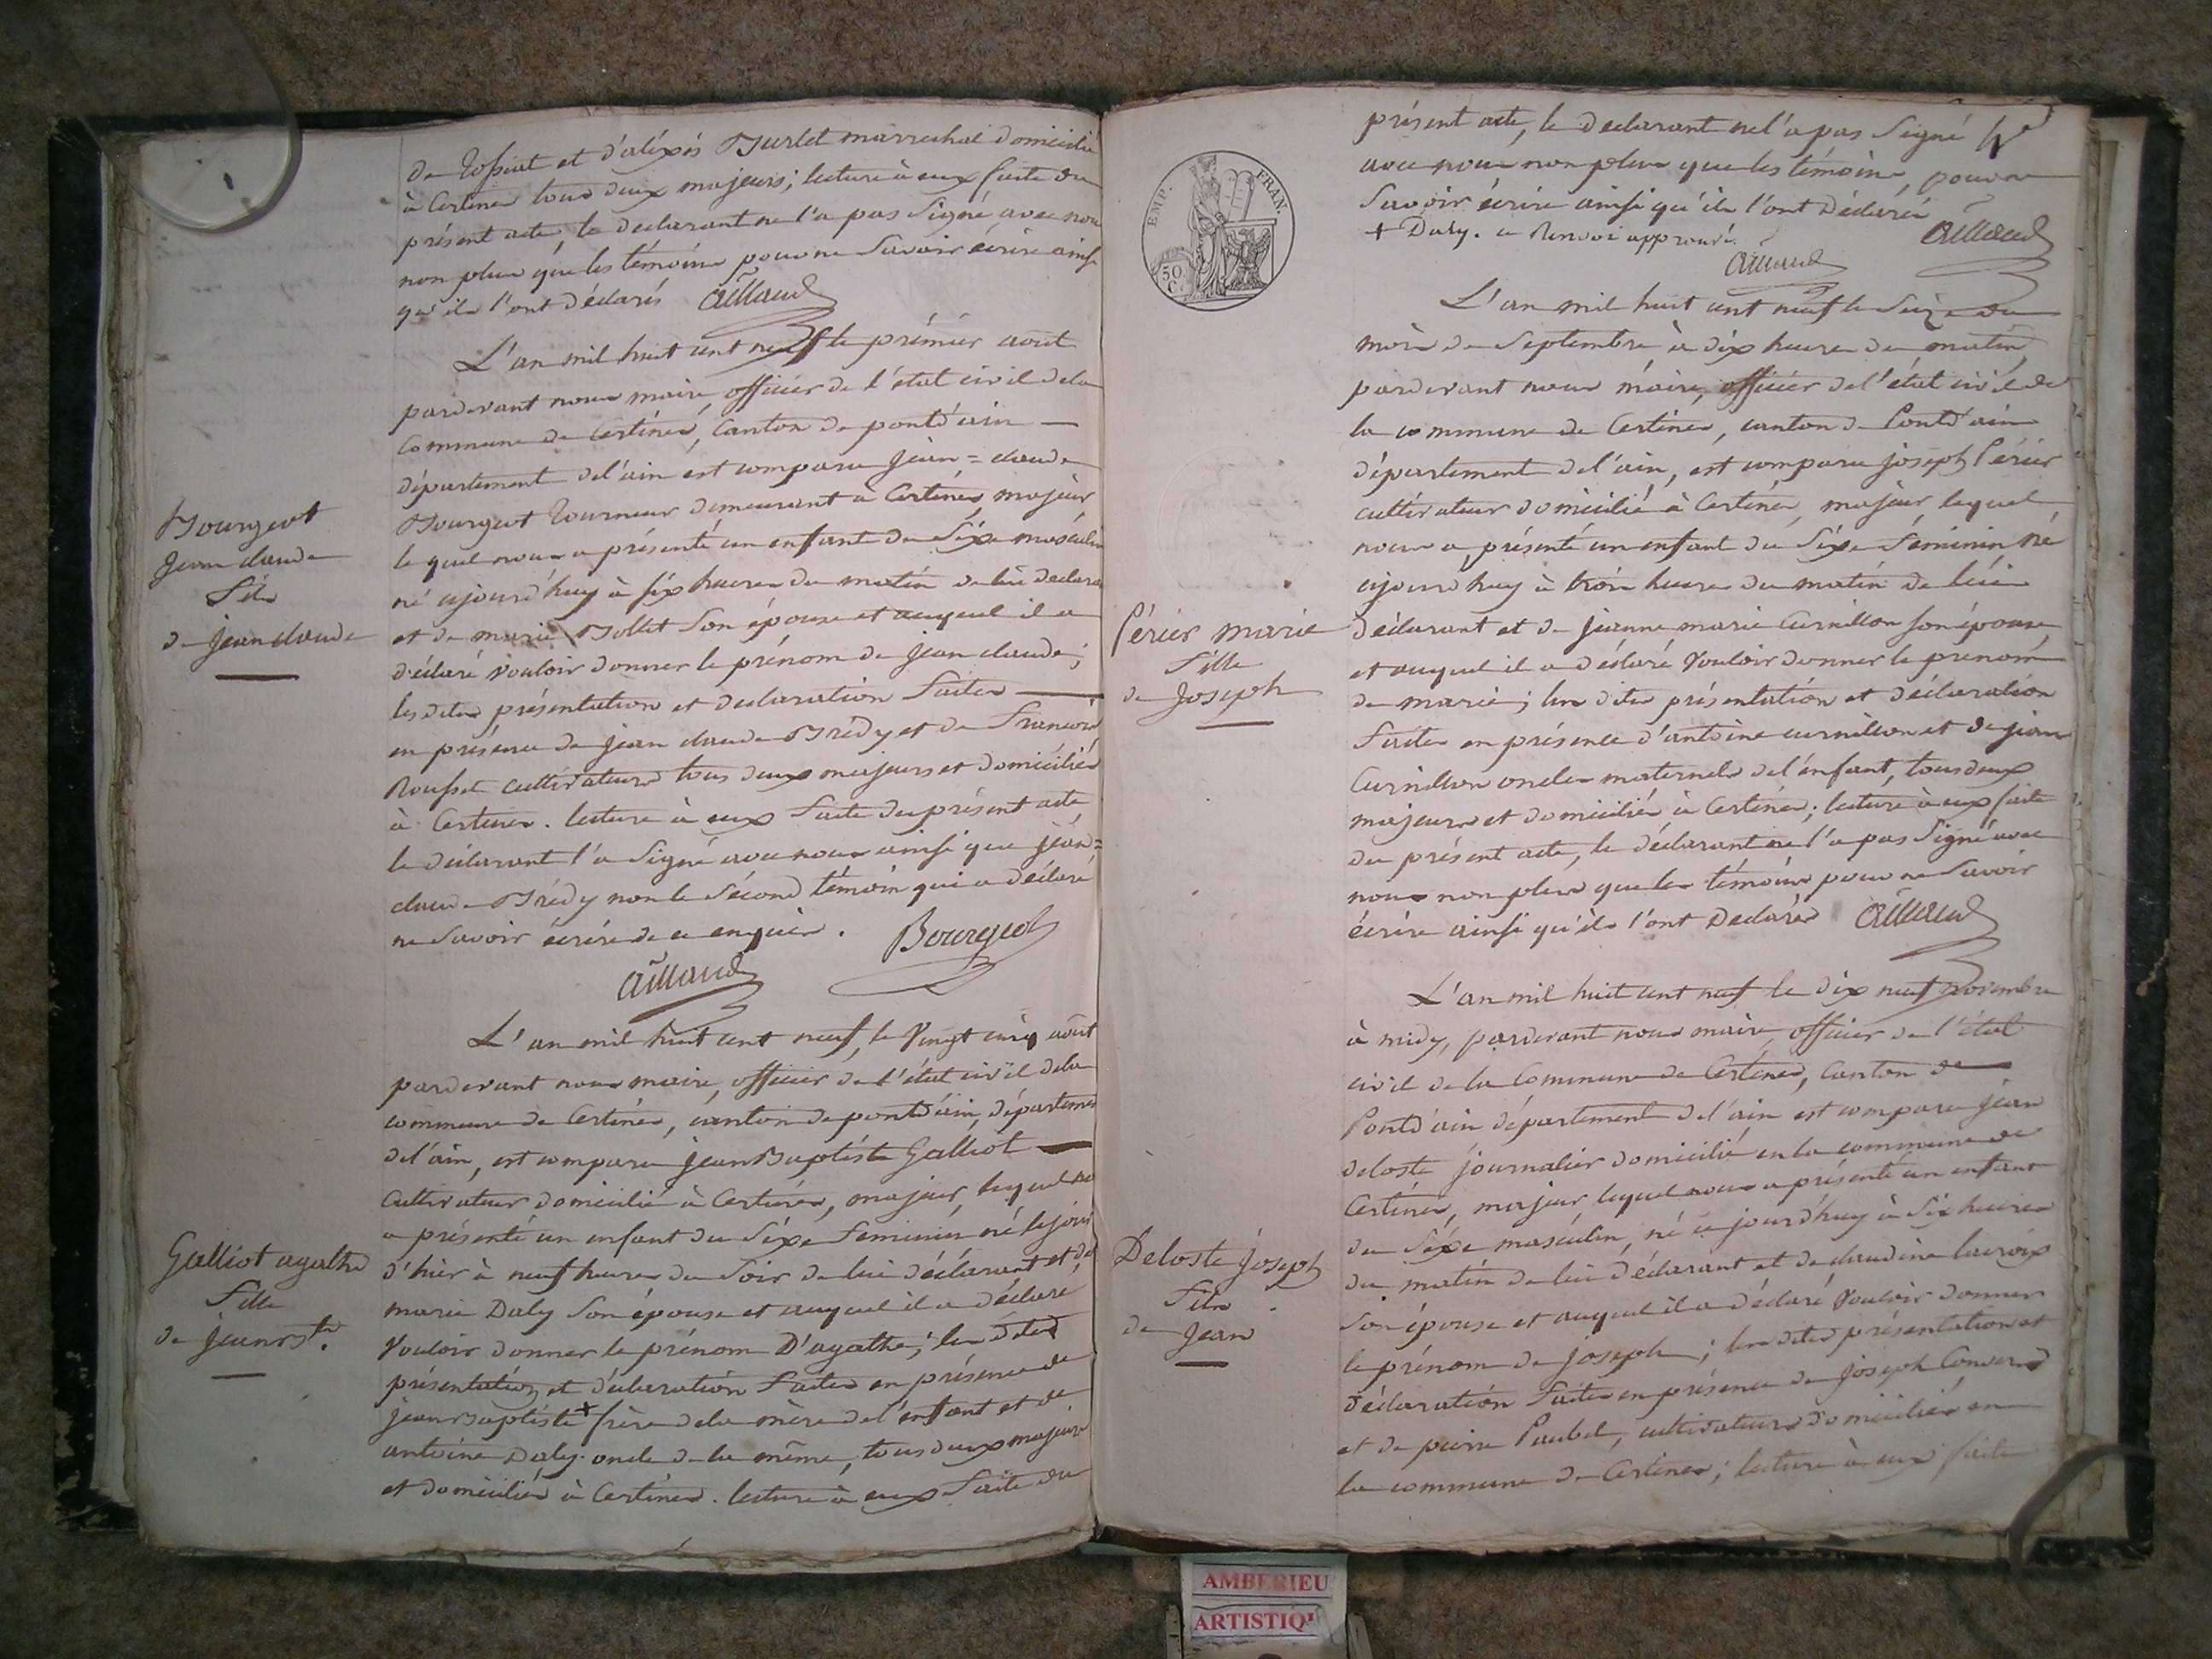 de tossiat et d'aléxis Burlet marrechal domicilié
à Certines tous deux majeurs; lecture à eux faite du
présent acte, le declarant ne l'a pas signé avec nous
non plus que les témoins pour ne savoir écrire ainsi
qu'ils l'ont déclarés Aillaud
L'an mil huit cent neuf le prémier aout
pardevant nous maire, officier de l'état civil dela
Commune de Certines, Canton de pontd'ain
département del'ain est comparu Jean=claude
Bourgeot tourneur demeurant à Certines, majeur
lequel nous a présenté un enfant du Séxe masculin
né ajourd'huy à six heures du matin de lui declarant
et de marie Bollet son épouse et auquel il a
déclaré vouloir donner le prénom de Jean claude;
les dites présentation et declaration faites
en présence de jean claude Brédy et de francois
Rousset cultivateurs tous deux majeurs et domiciliés
à Certines. lecture à eux faite du présent acte,
le declarant l'a signé avec nous ainsi que jean=
claude Brédy non le sécond témoin qui a déclaré
ne savoir écrire de ce enquis. Bourgeot
Aillaud
Bourgeot
Jean claude
fils
de jean claude
L'an mil huit cent neuf, le vingt cinq août
pardevant nous maire, officier de l'état civil dela
commune de Certines, canton de pontd'ain, département
del'ain, est comparu jean Baptiste Galliot
cultivateur domicilié à Certines, majeur, lequel nous
a présenté un enfant du séxe féminin né le jour
d'hier à neuf heures du soir de lui déclarant et de
marie Daly son épouse et auquel il a déclaré
vouloir donner le prénom D'agathe; les dites
présentation et déclaration faites en présence de
jean Baptiste + frère dela mère del'enfant et de
antoine Daly oncle de la même, tous deux majeurs
et domiciliés à Certines. lecture à eux faite du
Galliot agathe
fille
de jean Bte.
présent acte, le declarant ne l'a pas signé
avec nous non plus que les témoins, pour ne
savoir écrire ainsi qu'ils l'ont déclaré
+ Daly. ce Renvoi approuvé. Aillaud
Aillaud
EMP. FRAN.
50 C.
L'an mil huit cent neuf le seize du
mois de septembre à dix heures du matin,
pardevant nous maire, officier del'état civil de
la commune de Certines, canton de Pontd'ain
département del'ain, est comparu joseph Périer
cultivateur domicilié à Certines, majeur, lequel
nous a présenté un enfant du séxe féminin né
ajourdhuy à trois heures du matin de lui
déclarant et de jeanne marie Curnillon son épouse
et auquel il a déclaré vouloir donner le prenom
de marie; les dites présentation et déclaration
faites en présence d'antoine curnillon et de jean
Curnillon oncles maternels del'enfant, tous deux
majeurs et domiciliés à Certines; lecture à eux faite
du présent acte, le déclarant ne l'a pas signé avec
nous non plus que les témoins pour ne savoir
écrire ainsi qu'ils l'ont Declarés Aillaud
Périer marie
fille
de Joseph
L'an mil huit cent neuf le dix neuf novembre
à midy, pardevant nous maire, officier de l'état
civil de la Commune de Certines, Canton de
Pontd'ain département del'ain est comparu jean
deloste journalier domicilié en la commune de
Certines, majeur, lequel nous a présenté un enfant
du séxe masculin, né ce jourd'huy à six heures
du matin de lui déclarant et de claudine lacroix
son épouse et auquel il a déclaré vouloir donner
le prénom de joseph; les dites présentation et
déclaration faites en présence de joseph Convers
et de pierre Paubel, cultivateurs domiciliés en
la commune de Certines; lecture à eux faite
Deloste joseph
fils
de Jean
AMBERIEU
ARTISTIQ